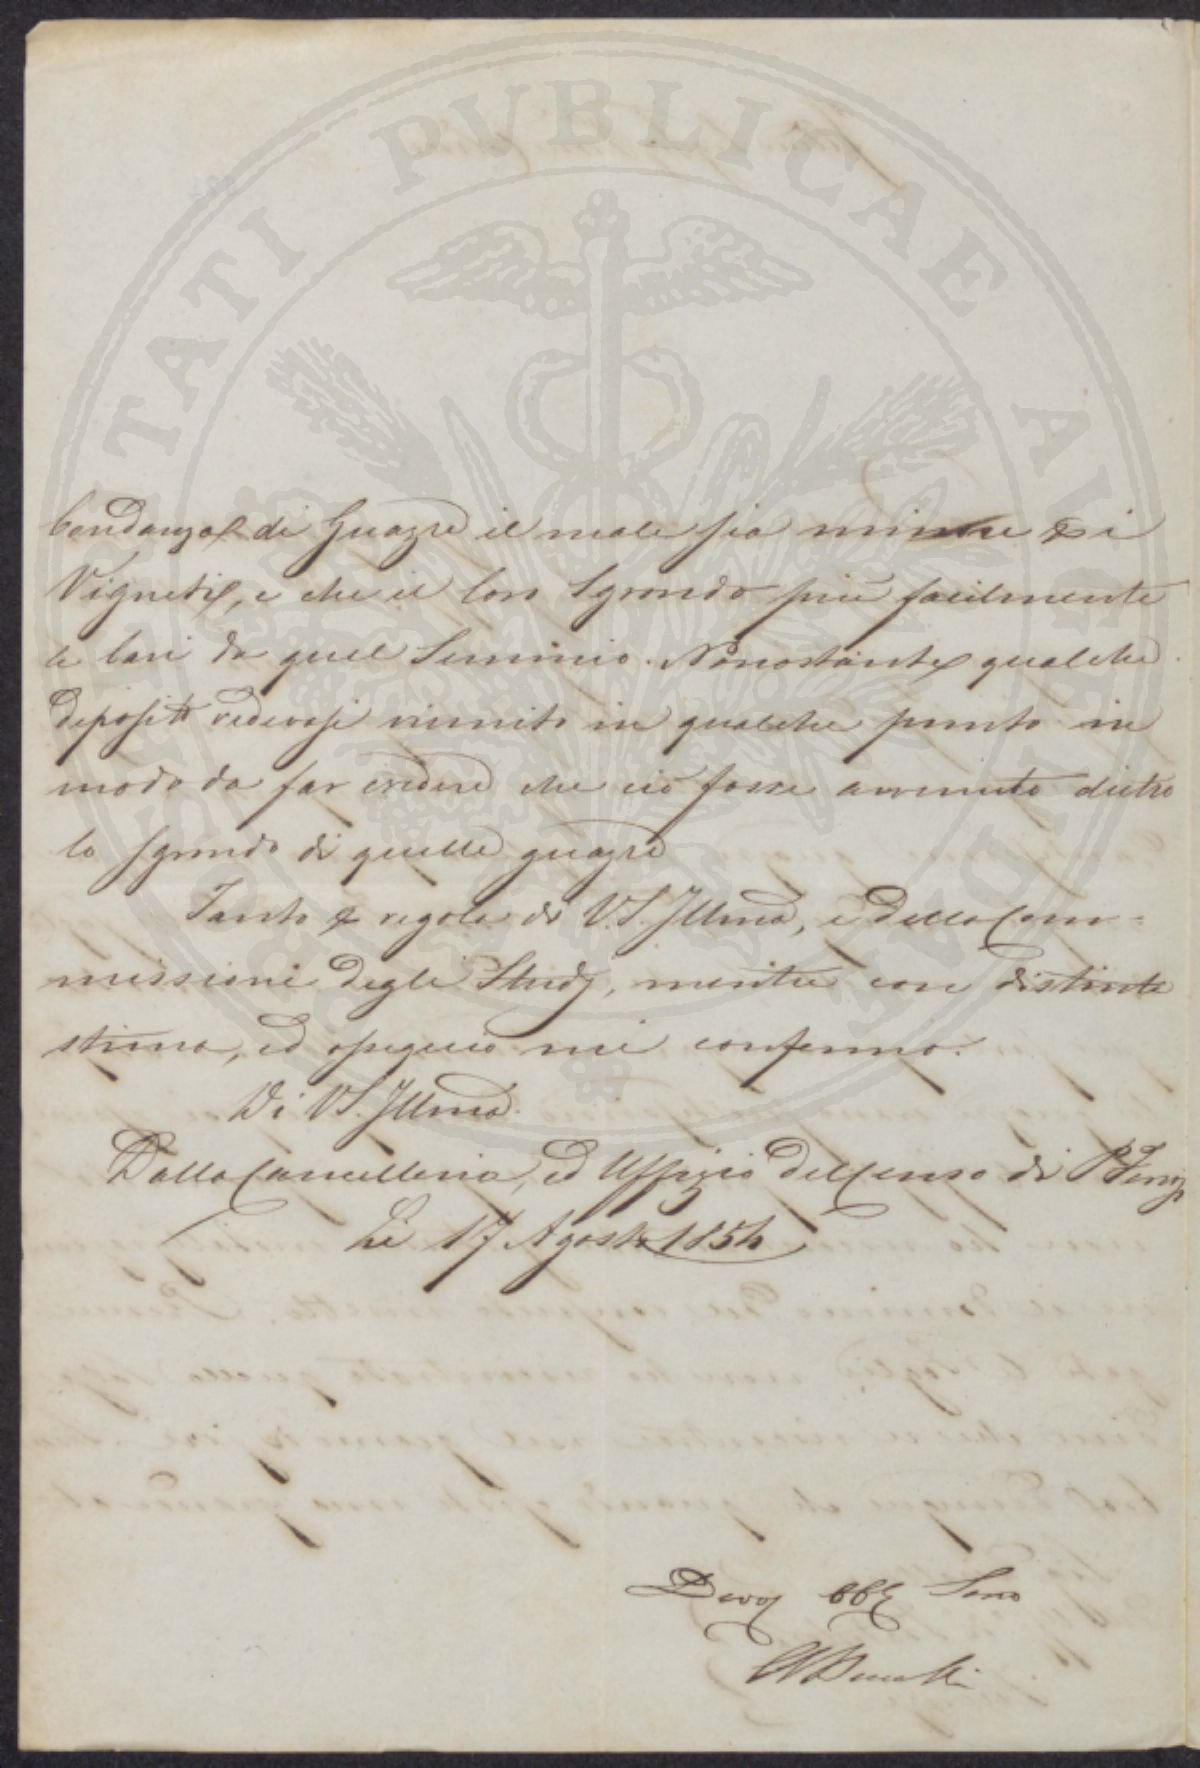 PVBLICAE
bondanza di Guazze il male sia minore di
Vigneti, e che il loro Sgrondo più facilmente
le lavi da quel Seminio. Nonostante qualche
deposito vedevasi riunito in qualche punto in
modo da far credere che ciò fosse avvenuto dietro
lo sgrondo di quelle guazze
Tanto p regola di V.S. Illma, e della Com-
missione degli Studj, mentre con distinta
stima, ed ossequio mi confermo.
Di V.S. Illma
Dalla Cancelleria, ed Uffizio del Censo di
Li 17 Agosto 1854
Devo obbl Servo